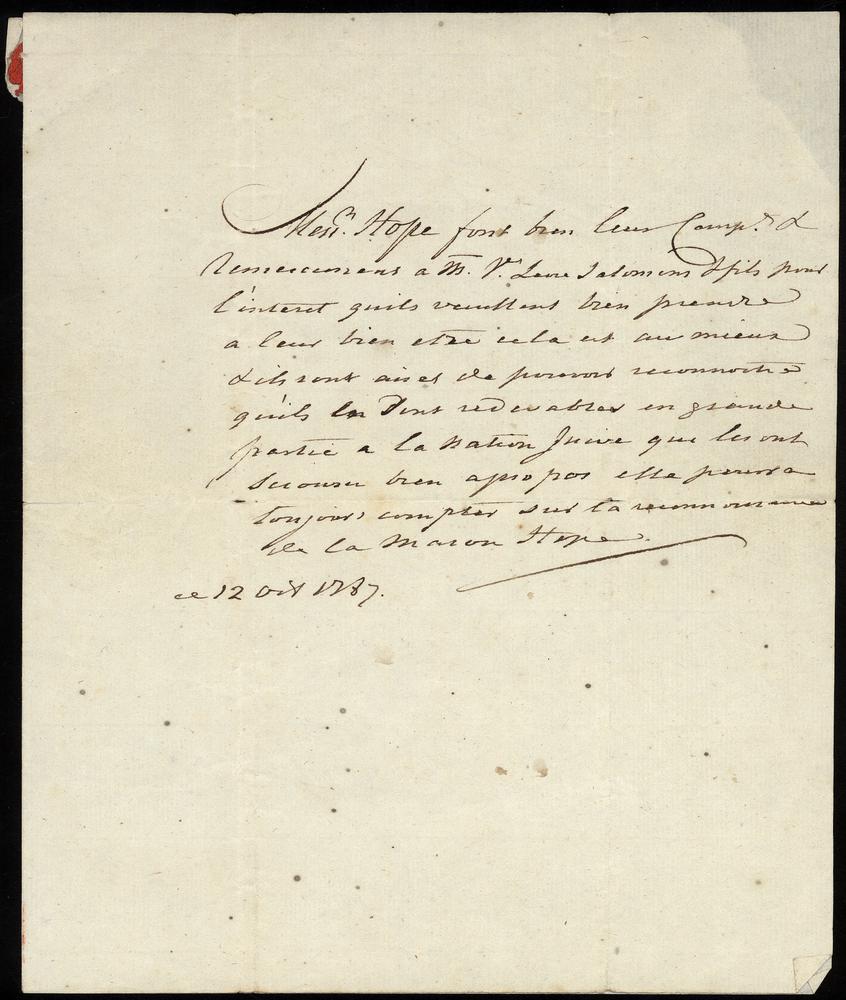 Mess.rs Hope font bien leurs Comp.ts &
Remerciemens a M. V.e Levie Salomons & fils pour
l'interet quils veuillent bien prendre
a leur bien etre cela est au mieux
& ils sont aises de pouvoir reconnoitre
qu'ils en sont redevables en grande
partie a la Nation Juive qui les ont
secouru bien apropos elle pourra
toujours compter sur la reconnoissance
de la Maison Hope.
ce 12 Oct 1787.